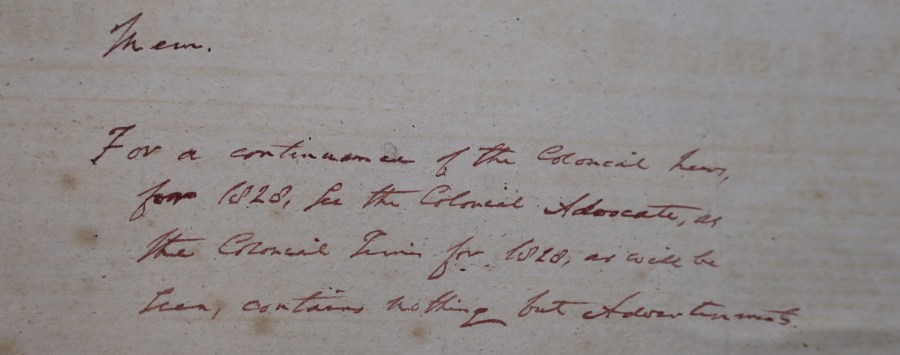 Mem.
For a continuance of the Colonial News,
for 1828, See the Colonial Advocate, as
the Colonial Times for 1828, as will be
Seen, contains nothing but Advertisments.